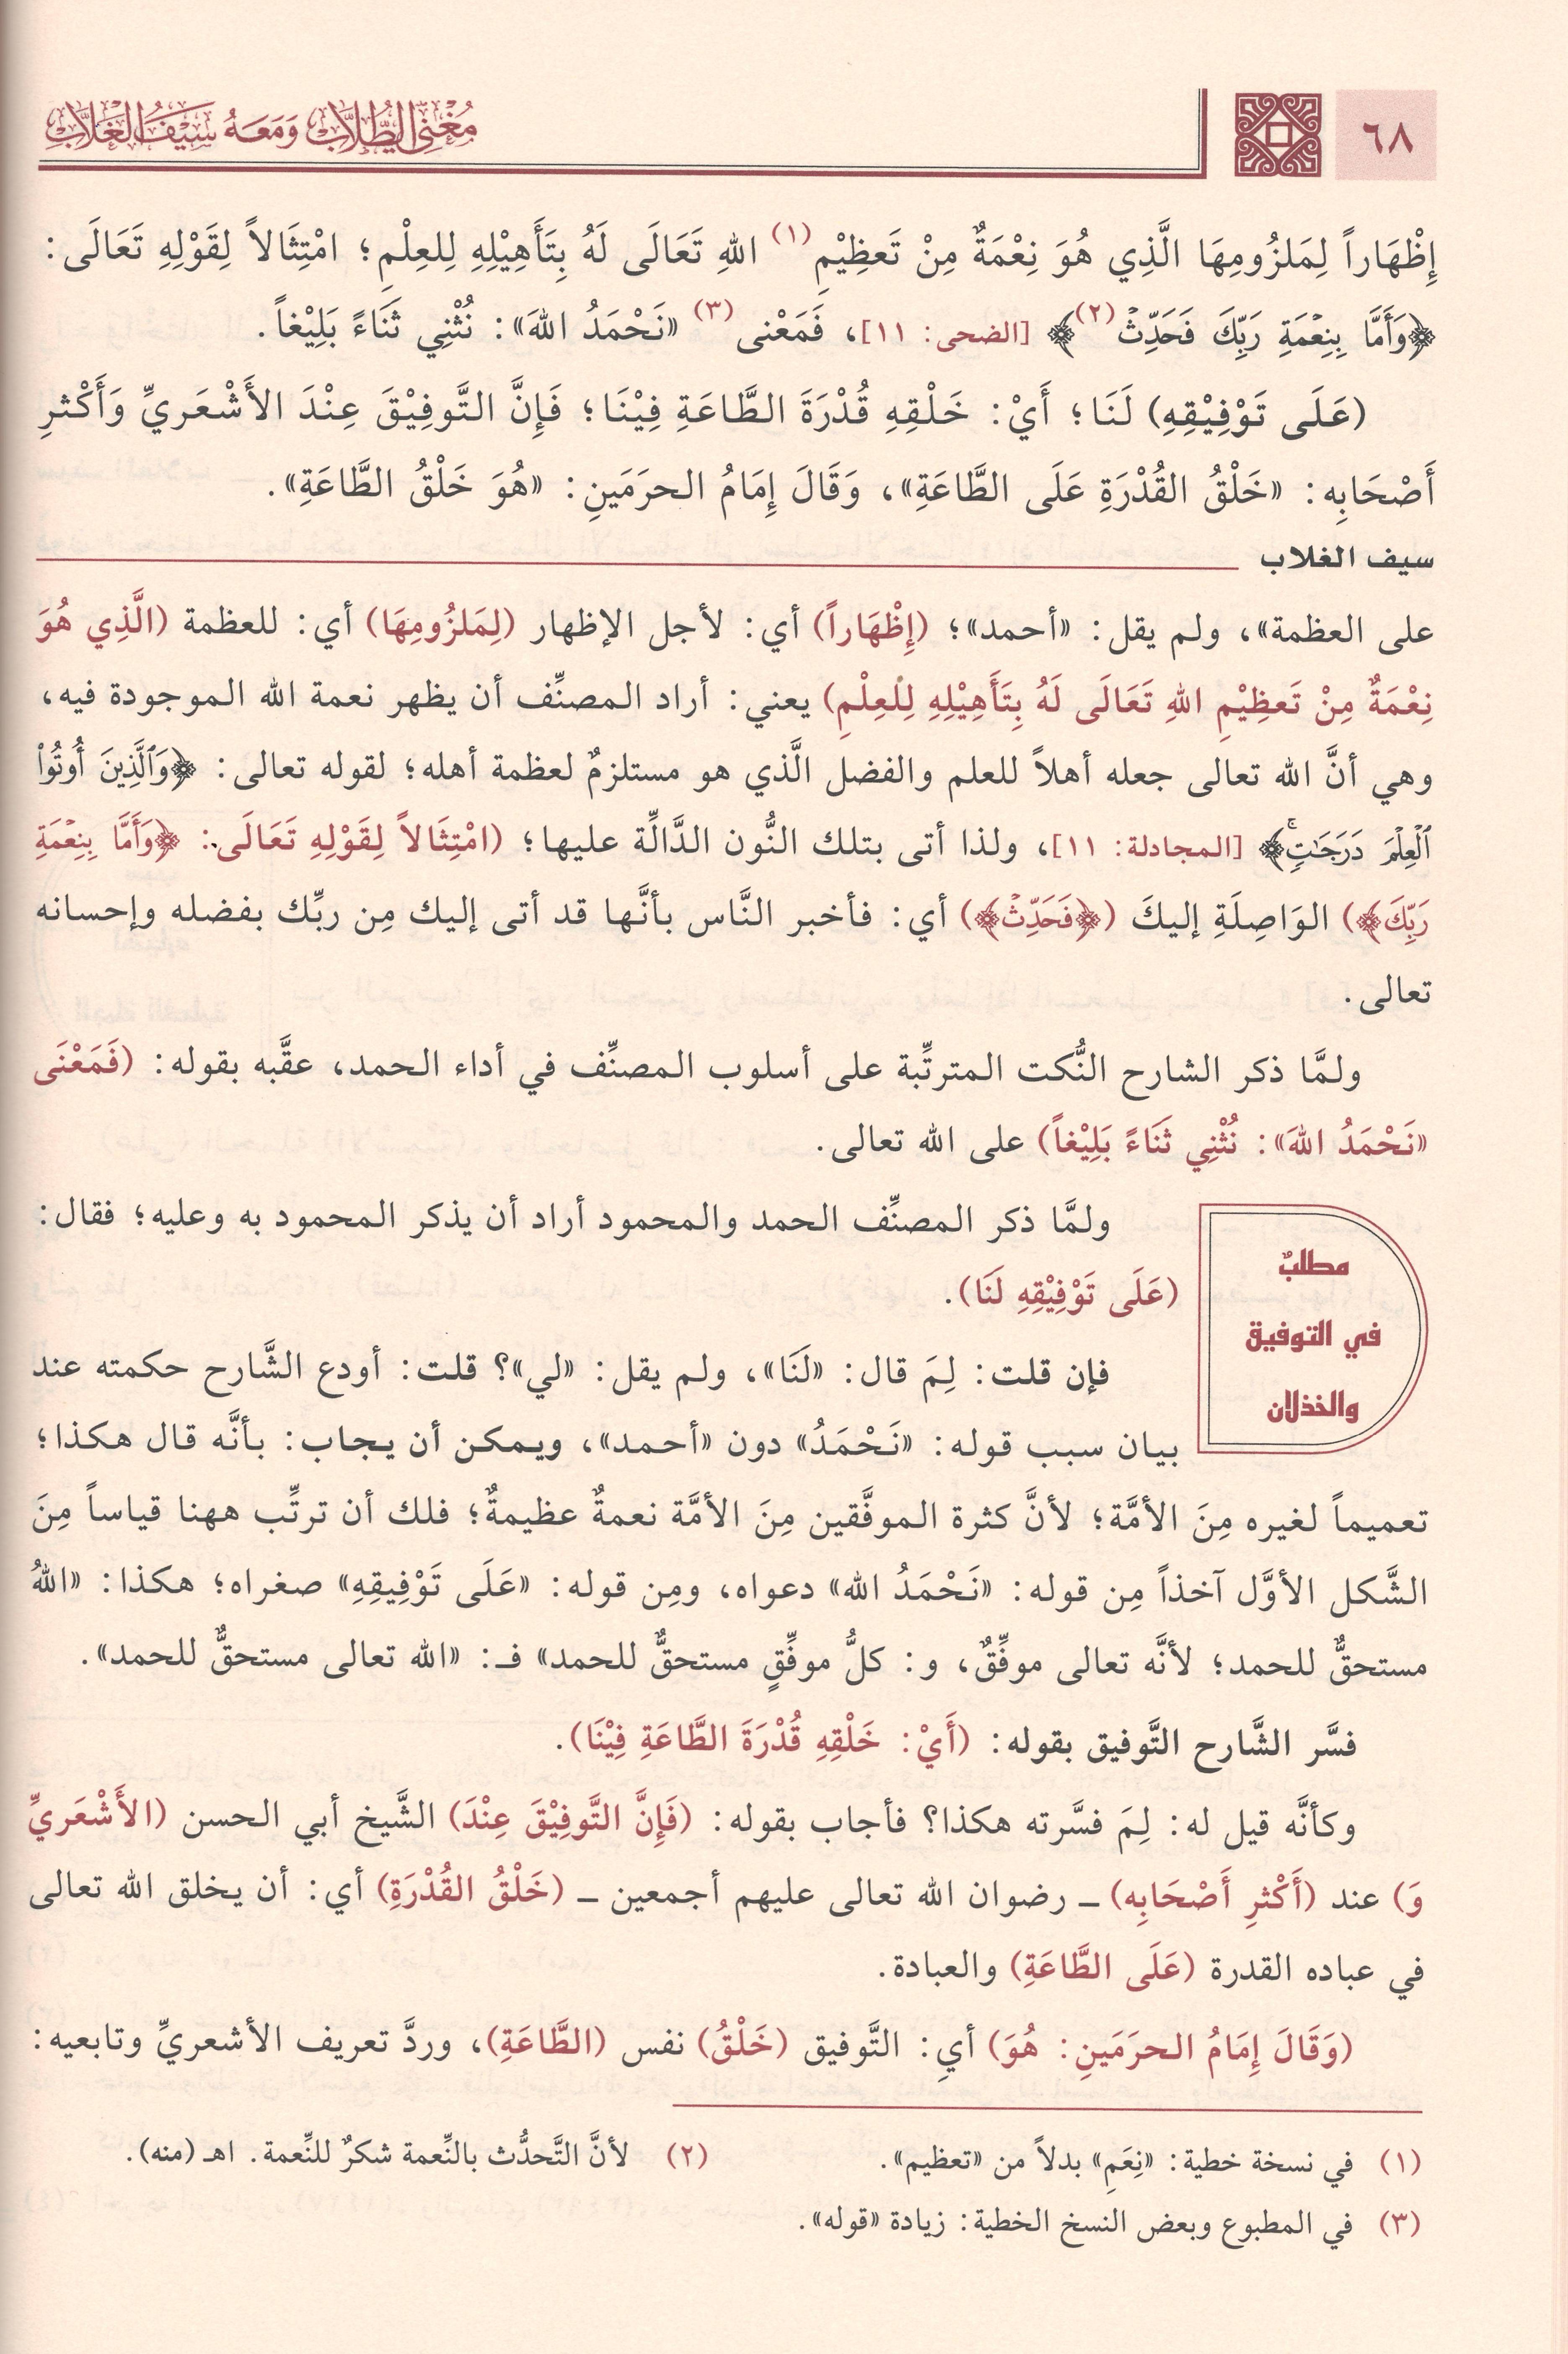 ٦٨
مُغْنِي الطُّلَّابِ وَمَعَهُ سَيْفُ الغَلَّابِ
إِظْهَاراً لِمَلزُومِهَا الَّذِي هُوَ نِعْمَةٌ مِنْ تَعظِيْمِ(١) اللهِ تَعَالَى لَهُ بِتَأَهِيْلِهِ لِلعِلْمِ؛ امْتِثَالاً لِقَوْلِهِ تَعَالَى:
﴿وَأَمَّا بِنِعْمَةِ رَبِّكَ فَحَدِّثْ(٢)﴾ [الضحى: ١١]، فَمَعْنى(٣) «نَحْمَدُ اللهَ»: نُثْنِي ثَنَاءً بَلِيْغاً.
(عَلَى تَوْفِيْقِهِ) لَنَا؛ أَيْ: خَلْقِهِ قُدْرَةَ الطَّاعَةِ فِيْنَا؛ فَإِنَّ التَّوفِيْقَ عِنْدَ الأَشْعَرِيِّ وَأَكْثرِ
أَصْحَابِه: «خَلْقُ القُدْرَةِ عَلَى الطَّاعَةِ»، وَقَالَ إِمَامُ الحرَمَينِ: «هُوَ خَلْقُ الطَّاعَةِ».
سيف الغلاب
على العظمة»، ولم يقل: «أحمد»؛ (إِظْهَاراً) أي: لأجل الإظهار (لِمَلزُومِهَا) أي: للعظمة (الَّذِي هُوَ
نِعْمَةٌ مِنْ تَعظِيْمِ اللهِ تَعَالَى لَهُ بِتَأَهِيْلِهِ لِلْعِلْمِ) يعني: أراد المصنِّف أن يظهر نعمة الله الموجودة فيه،
وهي أنَّ الله تعالى جعله أهلاً للعلم والفضل الَّذي هو مستلزمٌ لعظمة أهله؛ لقوله تعالى: ﴿وَٱلَّذِينَ أُوتُوا۟
ٱلْعِلْمَ دَرَجَـٰتٍۚ﴾ [المجادلة: ١١]، ولذا أتى بتلك النُّون الدَّالَّة عليها؛ (امْتِثَالاً لِقَوْلِهِ تَعَالَى: ﴿وَأَمَّا بِنِعْمَةِ
رَبِّكَ﴾) الوَاصِلَةِ إليكَ (﴿فَحَدِّثْ﴾) أي: فأخبر النَّاس بأنَّها قد أتى إليك مِن ربِّك بفضله وإحسانه
تعالى.
ولمَّا ذكر الشارح النُّكت المترتِّبة على أسلوب المصنِّف في أداء الحمد، عقَّبه بقوله: (فَمَعْنَى
«نَحْمَدُ اللهَ»: نُثْنِي ثَنَاءً بَلِيْغاً) على الله تعالى.
مطلبٌ
في التوفيق
والخذلان
ولمَّا ذكر المصنِّف الحمد والمحمود أراد أن يذكر المحمود به وعليه؛ فقال:
(عَلَى تَوْفِيْقِهِ لَنَا).
فإن قلت: لِمَ قال: «لَنَا»، ولم يقل: «لي»؟ قلت: أودع الشَّارح حكمته عند
بيان سبب قوله: «نَحْمَدُ» دون «أحمد»، ويمكن أن يجاب: بأنَّه قال هكذا؛
تعميماً لغيره مِنَ الأمَّة؛ لأنَّ كثرة الموفَّقين مِنَ الأمَّة نعمةٌ عظيمةٌ؛ فلك أن ترتِّب ههنا قياساً مِنَ
الشَّكل الأوَّل آخذاً مِن قوله: «نَحْمَدُ الله» دعواه، ومِن قوله: «عَلَى تَوْفِيقِهِ» صغراه؛ هكذا: «اللهُ
مستحقٌّ للحمد؛ لأنَّه تعالى موفِّقٌ، و: كلُّ موفِّقٍ مستحقٌّ للحمد» فـ: «الله تعالى مستحقٌّ للحمد».
فسَّر الشَّارح التَّوفيق بقوله: (أَيْ: خَلْقِهِ قُدْرَةَ الطَّاعَةِ فِيْنَا).
وكأنَّه قيل له: لِمَ فسَّرته هكذا؟ فأجاب بقوله: (فَإِنَّ التَّوفِيْقَ عِنْدَ) الشَّيخ أبي الحسن (الأَشْعَرِيِّ
وَ) عند (أَكْثرِ أَصْحَابِه) ـ رضوان الله تعالى عليهم أجمعين ـ (خَلْقُ القُدْرَةِ) أي: أن يخلق الله تعالى
في عباده القدرة (عَلَى الطَّاعَةِ) والعبادة.
(وَقَالَ إِمَامُ الحرَمَينِ: هُوَ) أيِ: التَّوفيق (خَلْقُ) نفس (الطَّاعَةِ)، وردَّ تعريف الأشعريِّ وتابعيه:
(١) في نسخة خطية: «نِعَمِ» بدلاً من «تعظيم».
(٢) لأنَّ التَّحدُّث بالنِّعمة شكرٌ للنِّعمة. اهـ (منه).
(٣) في المطبوع وبعض النسخ الخطية: زيادة «قوله».